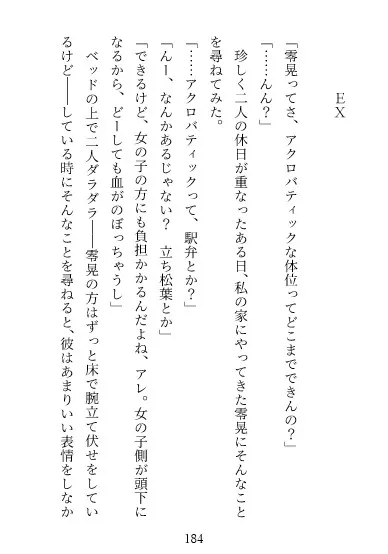 ＥＸ
「零晃ってさ、アクロバティックな体位ってどこまでできんの？」
「……んん？」
　珍しく二人の休日が重なったある日、私の家にやってきた零晃にそんなこと
を尋ねてみた。
「……アクロバティックって、駅弁とか？」
「んー、なんかあるじゃない？　立ち松葉とか」
「できるけど、女の子の方にも負担かかるんだよね、アレ。女の子側が頭下に
なるから、どーしても血がのぼっちゃうし」
　ベッドの上で二人ダラダラ――零晃の方はずっと床で腕立て伏せをしてい
るけど――している時にそんなことを尋ねると、彼はあまりいい表情をしなか
184